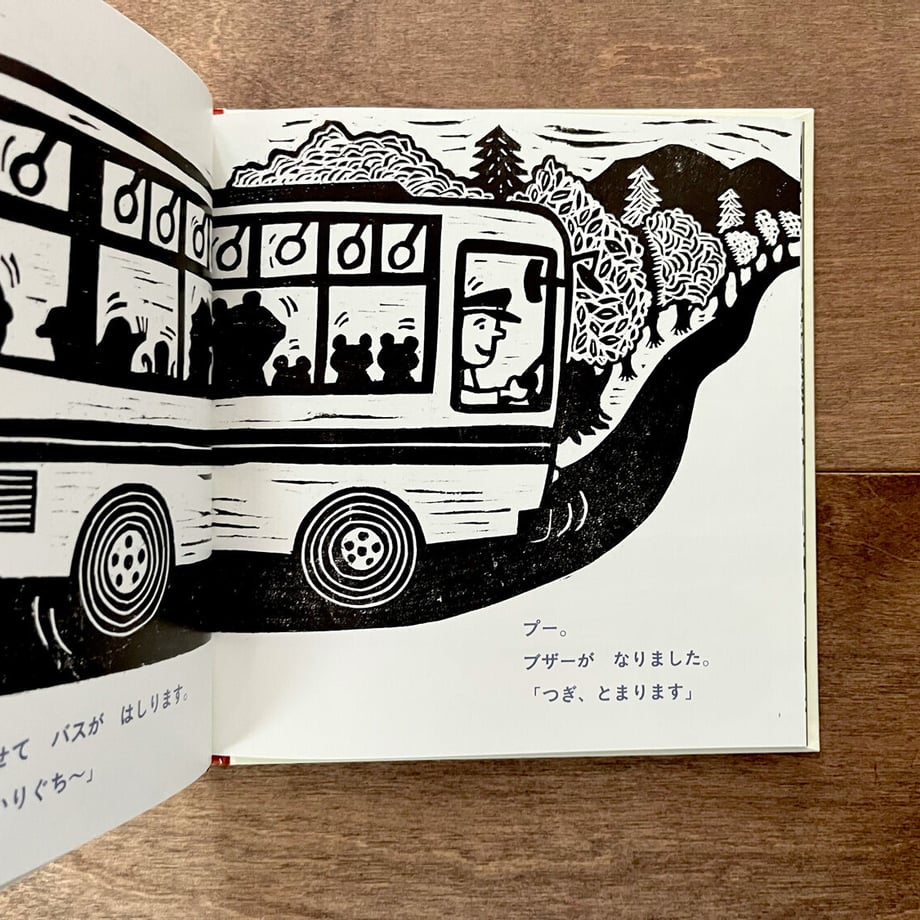 せて　バスが　はしります。
いりぐち〜」
プー。
ブザーが　なりました。
「つぎ、とまります」